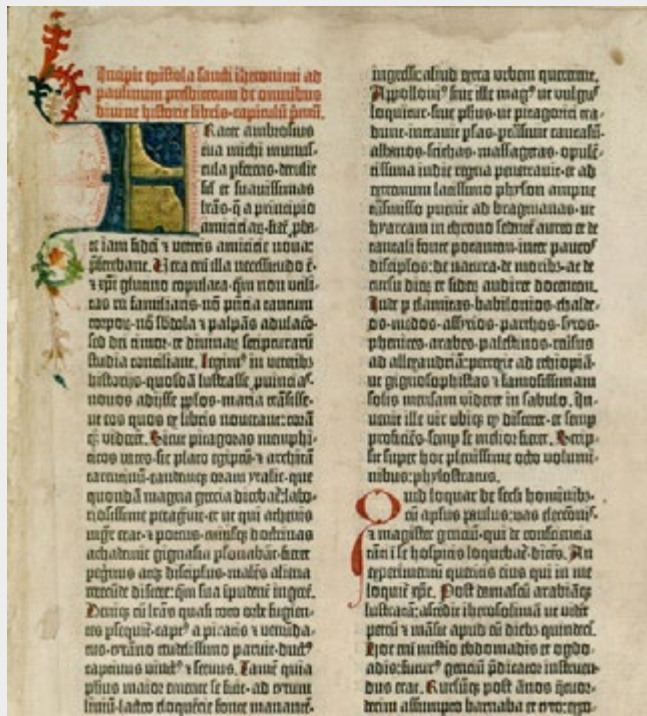 Incipit epistola sancti iheronimi ad
paulinum presbiterum de omnibus
divine historie libris·capitulū pmū.
Frater ambrosius
tua michi munus-
cula pferens·detulit
sil et suavissimas
lrās·q̄ a principio
amiciciaꝝ·fidē pba-
te iam fidei ⁊ veteris amicicie nova:
pferebant. Vera em illa necessitudo ē·
⁊ xpi glutino copulata·qm non utili-
tas rei familiaris·nō pntia tantum
corpoꝝ·nō sbdola ⁊ palpās adulacō·
sed dei timor·et divinaꝝ scripturarū
studia conciliant. Legimꝰ in veteribꝫ
historijs·quosdā lustrasse ꝓvinciaꝰ·
novos adijsse pplos·maria trāsisse·
ut eos quos ex libris noverant: corā
qꝫ viderēt. Sicut pitagoras memphi-
ticos vates·sic plato egiptū·⁊ architā
tarentinū·eandemqꝫ oram ytalie·que
quondā magna grecia dicebat̄: labo-
riosissime peragvit·et ut qui athenis
mgr̄ erat·⁊ potens·cuiusqꝫ doctrinas
achademie gignasia psonabāt·fieret
pegrinus atqꝫ discipulus·malēs aliena
verecūde discere: qm sua īpudent̄ ingrere.
Deniqꝫ cū lrās quasi toto orbe fugien-
tes psequit̄·captꝰ a piratis ⁊ venūda-
tus·tyrāno crudelissimo paruit·ductꝰ
captivus vinctꝰ ⁊ servus. Tamē quia
phūs maior emente se fuit·ad tytum
livium·lacteo eloquētie fonte manantē·
ingressi aliud extra urbem quererent.
Appolloniꝰ sive ille magꝰ ut vulgꝰ
loquitur·sive phūs·ut pitagorici tra-
dunt·intravit psas·ptrāsivit caucasū·
albanos·scithas·massagetas·opulē-
tissima indie regna penetravit·et ad
extremum latissimo physon ampne
trāsmisso pvenit ad bragmanas·ut
hyarcam in throno sedētē aureo et de
tantali fonte potantem·inter paucoꝰ
discipulos: de natura·de moribꝫ·ac de
cursu dieꝝ et sideꝝ audiret docentem.
Inde p elamitas·babilonios·chalde-
os·medos·assyrios·parthos·syros·
phenices·arabes·palestinos·revsus
ad allexandriā: perrexit ad ethiopiā·
ut gignosophistas ⁊ famosissimam
solis mensam videret in sabulo. In-
venit ille vir ubiqꝫ qd disceret·et semp
proficiēs·semp se melior fieret. Scrip-
sit super hoc plenissime octo volumi-
nibus: phylostratus.
Quid loquar de secli hominibꝫ·
cū apłus paulus: vas electōnis·
⁊ magister genciū·qui de consciencia
tāti ī se hospitis loquebat̄·dicēs. An
experimentū queritis eius qui in me
loquit̄ xpc. Post damascū arabiāqꝫ
lustratā: ascēdit iherosolimā ut videt
petrū ⁊ māsit apud eū diebꝫ quindeci.
Hoc em misterio ebdomadis et ogdo-
adis: futurꝰ genciū pdicator instruen-
dus erat. Rursūqꝫ post ānos quatuor-
decim assumpto barnaba et tyto: expo-